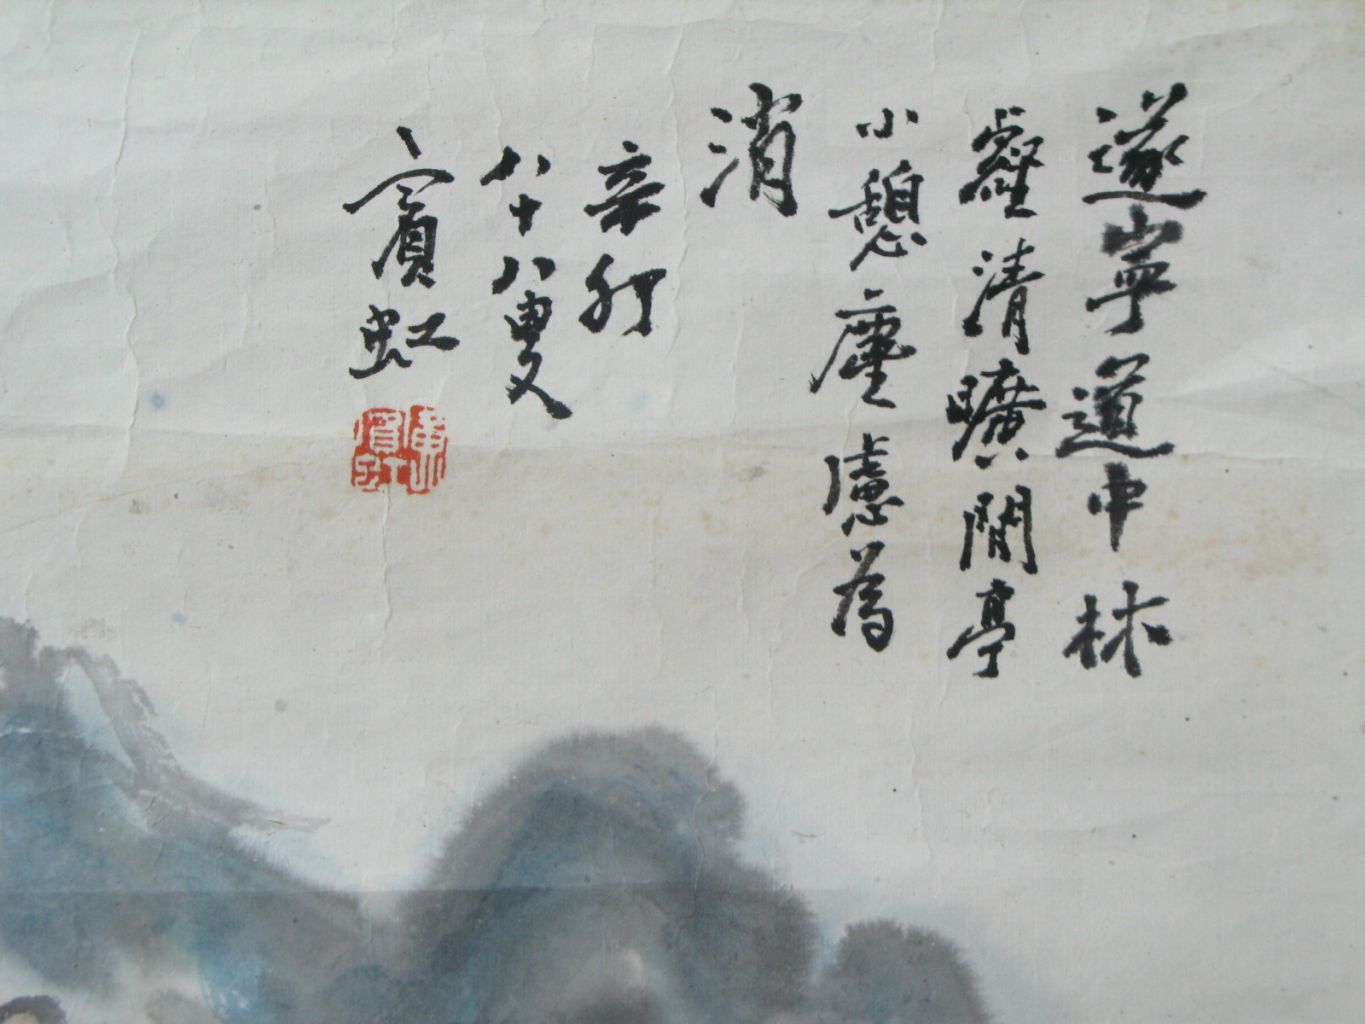 遂寧道中林
壑清曠閒亭
小憩塵慮為
消
辛卯
八十八叟
賓虹
黃賓虹